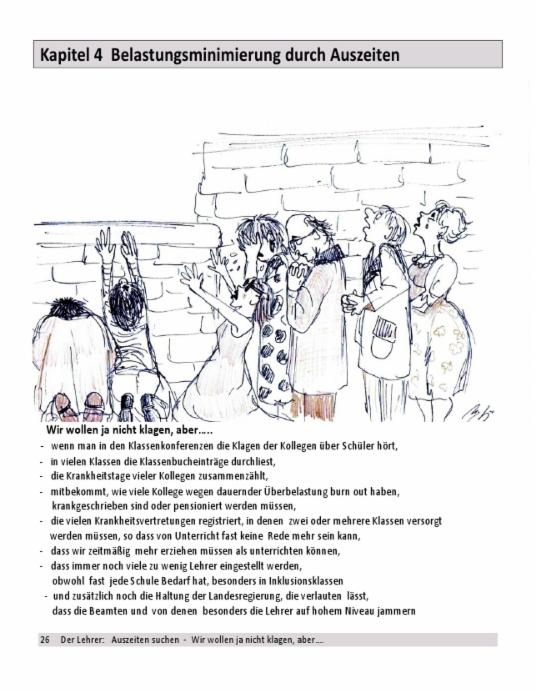 Kapitel 4 Belastungsminimierung durch Auszeiten
Wir wollen ja nicht klagen, aber.....
- wenn man in den Klassenkonferenzen die Klagen der Kollegen über Schüler hört,
- in vielen Klassen die Klassenbucheinträge durchliest,
- die Krankheitstage vieler Kollegen zusammenzählt,
- mitbekommt, wie viele Kollege wegen dauernder Überbelastung burn out haben,
krankgeschrieben sind oder pensioniert werden müssen,
- die vielen Krankheitsvertretungen registriert, in denen zwei oder mehrere Klassen versorgt
werden müssen, so dass von Unterricht fast keine Rede mehr sein kann,
- dass wir zeitmäßig mehr erziehen müssen als unterrichten können,
- dass immer noch viele zu wenig Lehrer eingestellt werden,
obwohl fast jede Schule Bedarf hat, besonders in Inklusionsklassen
- und zusätzlich noch die Haltung der Landesregierung, die verlauten lässt,
dass die Beamten und von denen besonders die Lehrer auf hohem Niveau jammern
26 Der Lehrer: Auszeiten suchen - Wir wollen ja nicht klagen, aber....